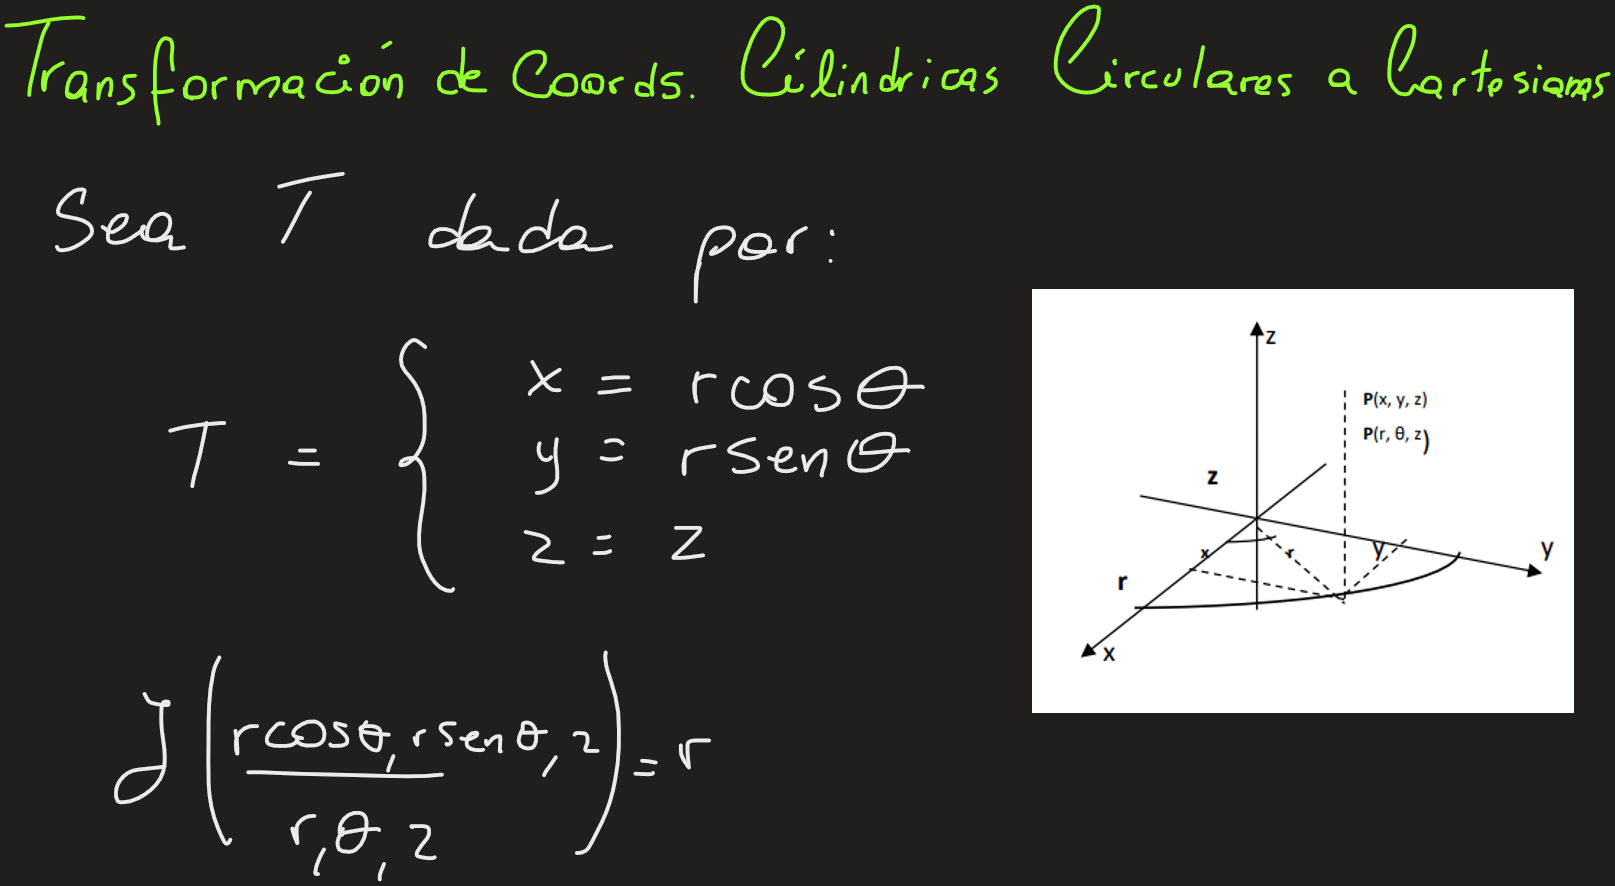 Transformación de Coords. Cilíndricas Circulares a Cartesianas
Sea T dada por:
T = { x = rcosθ
y = rsenθ
z = z
J ( rcosθ, rsenθ, z / r, θ, z ) = r
z
P(x, y, z)
P(r, θ, z)
z
x
r
y
y
r
x